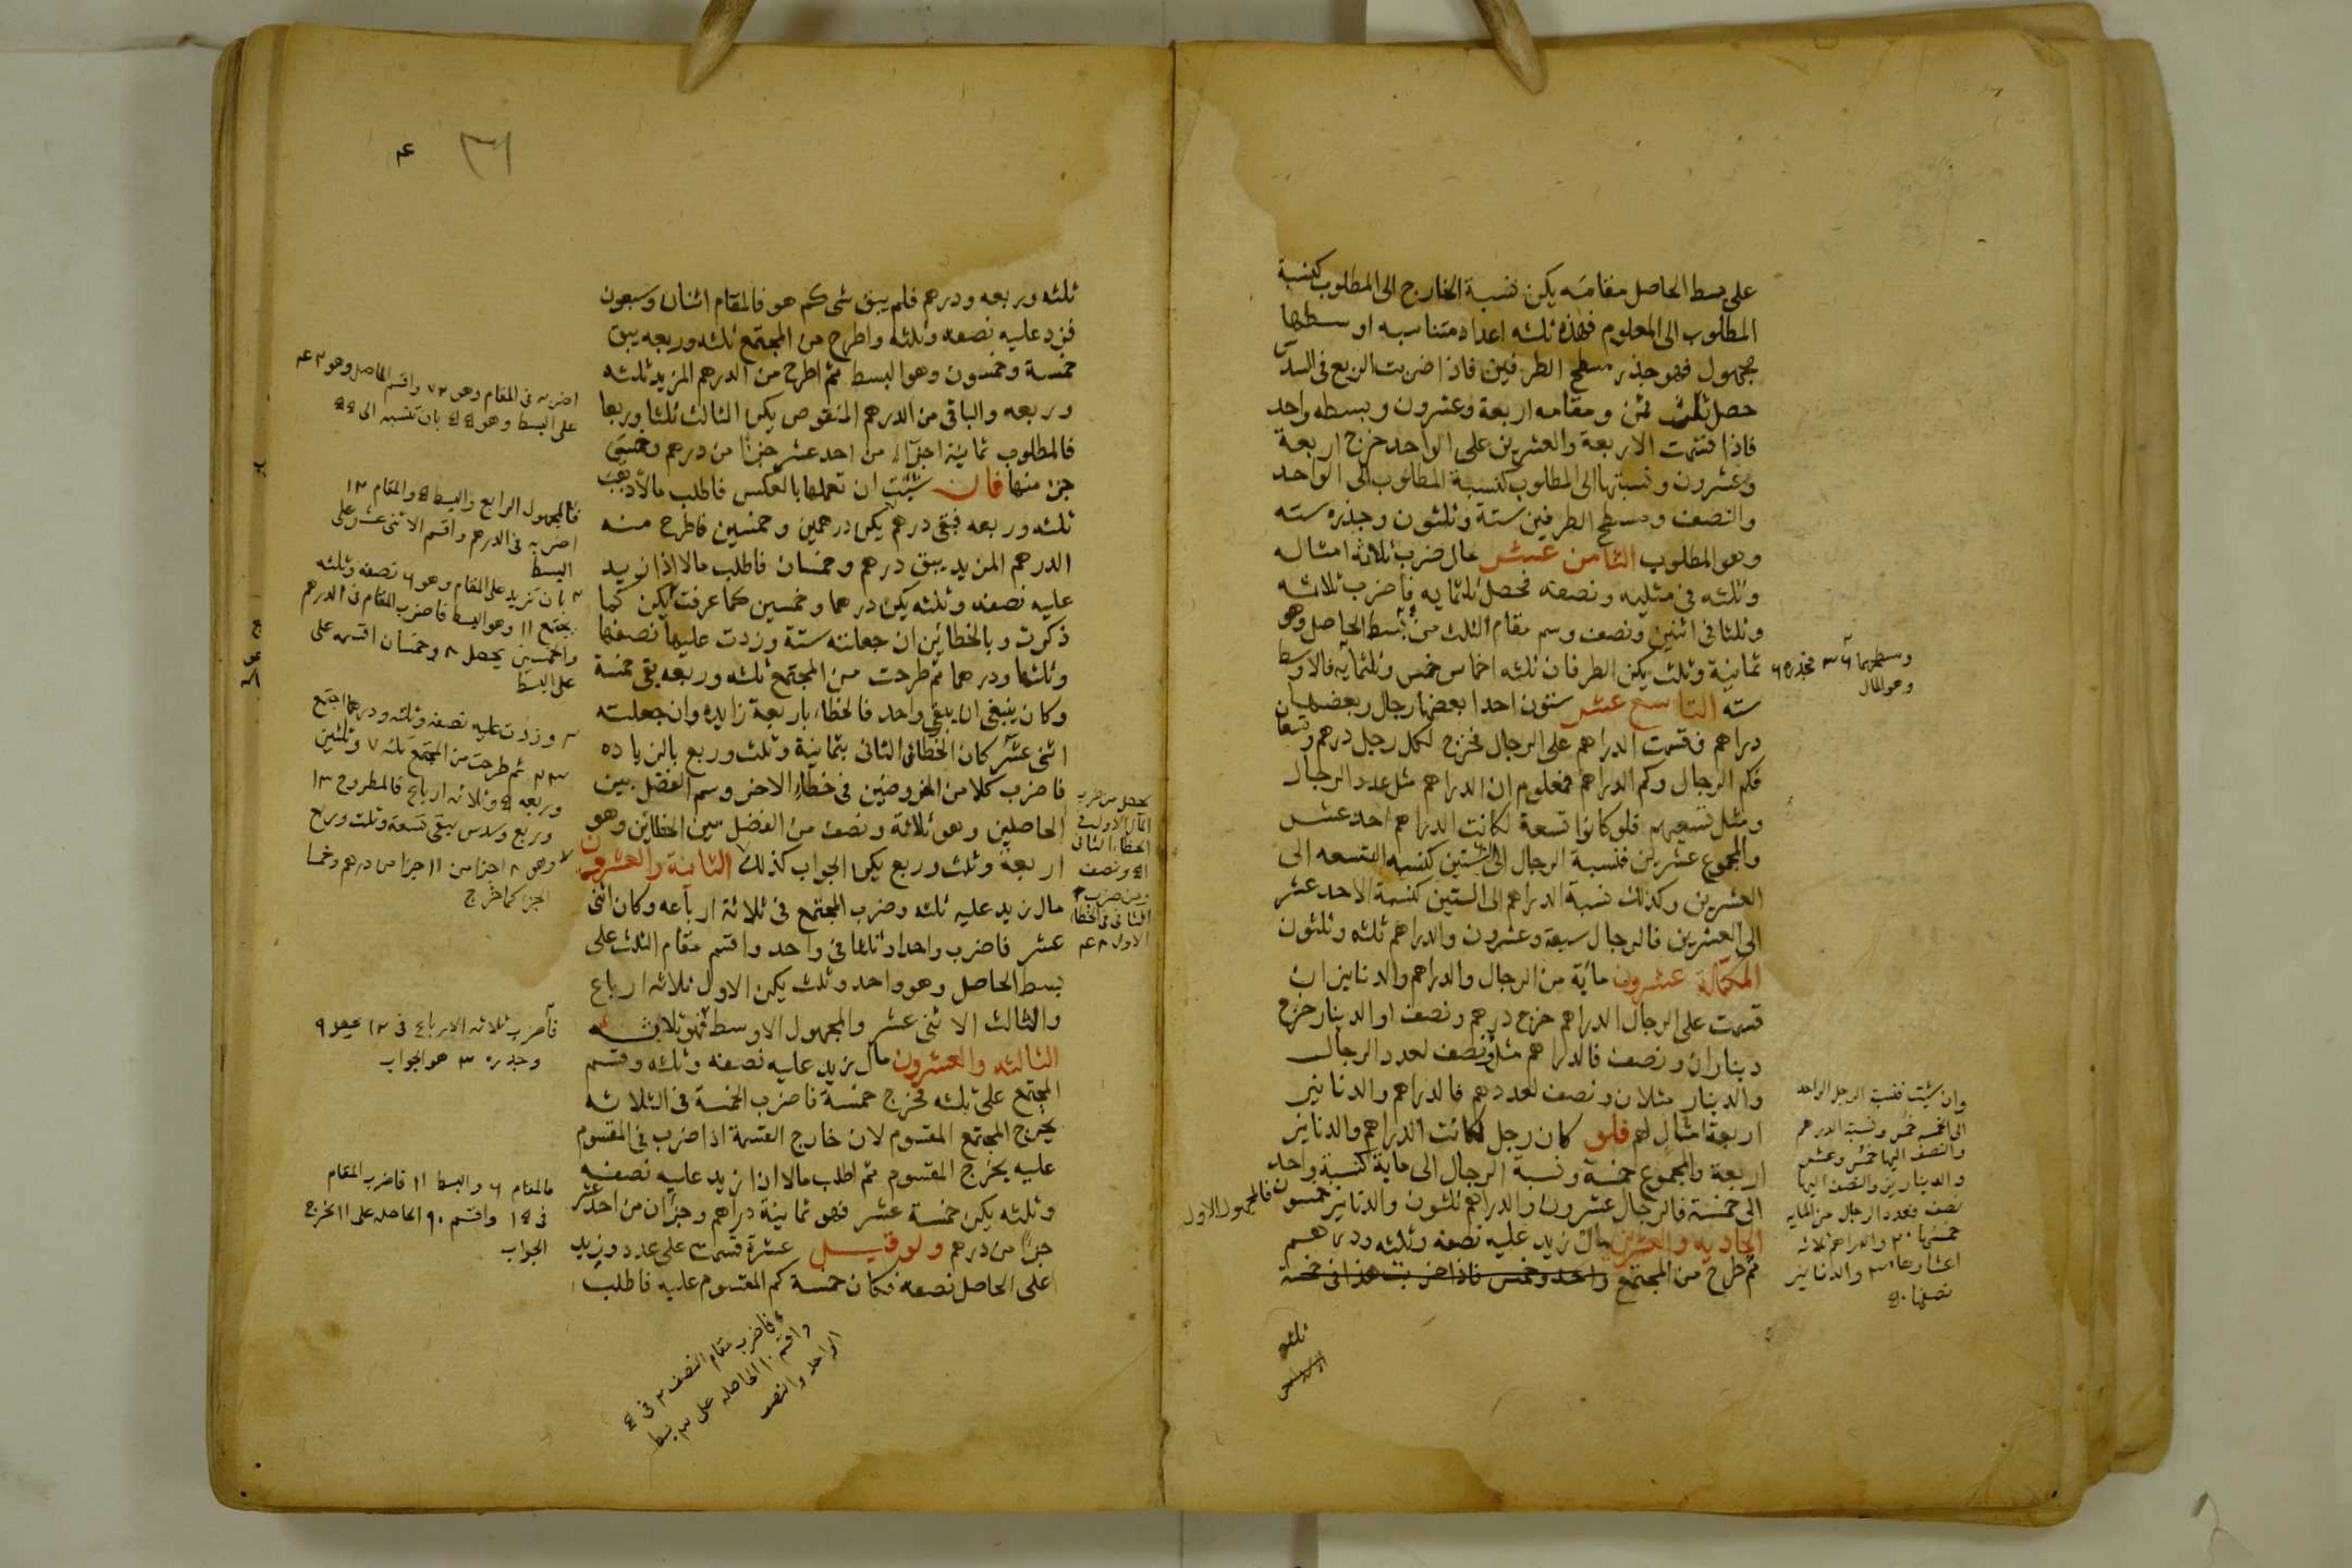 على بسط الحاصل مقامه يكن نسبة الخارج الى المطلوب كنسبة
المطلوب الى المعلوم فهذه ثلثه اعداد متناسبه اوسطها
مجهول فهو جذر مسطح الطرفين فاذا ضربت الربع فى السدس
حصل ثلث ثمن ومقامه اربعة وعشرون وبسطه واحد
فاذا قسمت الاربعة والعشرين على الواحد خرج اربعة
وعشرون ونسبتها الى المطلوب كنسبة المطلوب الى الواحد
والنصف ومسطح الطرفين ستة وثلثون وجذره سته
وهو المطلوب الثامن عشر مال ضرب ثلاثة امثاله
وثلثه فى مثليه ونصفه فحصل ثلثمايه فاضرب ثلاثه
وثلثا فى اثنين ونصف وسم مقام الثلث من بسط الحاصل وهو
ثمانية وثلث يكن الطرفان ثلثه اخماس خمس وثلثمايه فالاوسط
سته التاسع عشر ستون احدا بعضها رجال وبعضها
دراهم فقسمت الدراهم على الرجال فخرج لكل رجل درهم وتسعان
فكم الرجال وكم الدراهم فمعلوم ان الدراهم مثل عدد الرجال
ومثل تسعيهم فلو كانوا تسعة لكانت الدراهم احد عشر
والمجموع عشرين فنسبة الرجال الى الستين كنسبه التسعه الى
العشرين وكذلك نسبة الدراهم الى الستين كنسبة الاحد عشر
الى العشرين فالرجال سبعة وعشرون والدراهم ثلثه وثلثون
المكملة عشرون مأية من الرجال والدراهم والدنانير ان
قسمت على الرجال الدراهم خرج درهم ونصف او الدينار خرج
ديناران ونصف فالدراهم مثل ونصف لعدد الرجال
والدينار مثلان ونصف لعددهم فالدراهم والدنانير
اربعة امثال لهم فلو كان رجل لكانت الدراهم والدنانير
اربعة والمجموع خمسة ونسبة الرجال الى ماية كنسبة واحد
الى خمسة فالرجال عشرون والدراهم ثلثون والدنانير خمسون فالمجهول الاول
الحاديه والعشرين مال زيد عليه نصفه وثلثه ودرهم
ثم طرح من المجتمع واحد وخمس فاذا ضربت هذا فى خمسة
ثلثه
وسطحهما ٣٦ فجذره ٦
وهو المال
وان شئت فنسبة الرجل الواحد
الى الخمسه خمس ونسبة الدرهم
والنصف اليها خمس وعشر
والدينارين والنصف اليها
نصف فعدد الرجال من المايه
خمسها ٢٠ والدراهم ثلاثه
اعشارها ٣٠ والدنانير
نصفها ٥٠
٣٦
ثلثه وربعه ودرهم فلم يبق شى كم هو فالمقام اثنان وسبعون
فزد عليه نصفه وثلثه واطرح من المجتمع ثلثه وربعه يبق
خمسة وخمسون وهو البسط ثم اطرح من الدرهم المزيد ثلثه
وربعه والباقى من الدرهم المنقوص يكن الثالث ثلثا وربعا
فالمطلوب ثمانية اجزاء من احد عشر جزءا من درهم وخمس
جزء منها فان شئت ان تعملها بالعكس فاطلب مالا ذهب
ثلثه وربعه فبقى درهم يكن درهمين وخمسين فاطرح منه
الدرهم المزيد يبق درهم وخمسان فاطلب مالا اذا زيد
عليه نصفه وثلثه يكن درهما وخمسين كما عرفت يكن كما
ذكرت وبالخطائين ان جعلته ستة وزدت عليها نصفها
وثلثها ودرهما ثم طرحت من المجتمع ثلثه وربعه بقى خمسة
وكان ينبغى ان يبقى واحد فالخطاء باربعة زايده وان جعلته
اثنى عشر كان الخطائى الثانى بثمانية وثلث وربع بالزياده
فاضرب كلا من المفروضين فى خطاء الاخر وسم الفضل بين
الحاصلين وهو ثلاثة ونصف من الفضل بين الخطائين وهو
اربعة وثلث وربع يكن الجواب كذلك الثانية والعشرون
مال زيد عليه ثلثه وضرب المجتمع فى ثلاثة ارباعه وكان اثنى
عشر فاضرب واحدا وثلثا فى واحد واقسم مقام الثلث على
بسط الحاصل وهو واحد وثلث يكن الاول ثلاثه ارباع
والثالث الاثنى عشر والمجهول الاوسط فهو ثلاثه
الثالثه والعشرون مال زيد عليه نصفه وثلثه وقسم
المجتمع على ثلثه فخرج خمسة فاضرب الخمسة فى الثلاثه
يخرج المجتمع المقسوم لان خارج القسمة اذا ضرب فى المقسوم
عليه يخرج المقسوم ثم اطلب مالا اذا زيد عليه نصفه
وثلثه يكن خمسة عشر فهو ثمانية دراهم وجزآن من احد عشر
جزءا من درهم ولو قيل عشرة قسمت على عدد وزيد
على الحاصل نصفه فكان خمسة كم المقسوم عليه فاطلب
اضربه فى المقام وهو ٧٢ واقسم الحاصل وهو ٤٢
على البسط وهو ٥٥ بان تنسبه الى ٥٥
فالمجهول الرابع والبسط ٥ والمقام ١٢
اضربه فى الدرهم واقسم الاثنى عشر على
البسط
بان تزيد على المقام وهو ٦ نصفه وثلثه
يجتمع ١١ وهو البسط فاضرب المقام فى الدرهم
والخمسين يحصل ٨ وخمسان اقسمه على
على البسط
وزدت عليه نصفه وثلثه ودرهما اجتمع
٢٣ ثم طرحت من المجتمع ثلثه ٧ وثلثين
وربعه ٥ وثلاثه ارباع فالمطروح ١٣
وربع وسدس يبقى تسعة وثلث وربع
وهو ٨ اجزا من ١١ جزا من درهم وخمسا
الجزء كما خرج
يحصل من ضرب
المال الاول فى
الخطاء الثانى
٥١ ونصف
ومن ضرب
الثانى فى الخطاء
الاول ٤٨
فاضرب ثلاثه الارباع فى ١٢ يحصل ٩
وجذره ٣ هو الجواب
فالمقام ٦ والبسط ١١ فاضرب المقام
فى ١٥ واقسم ٩٠ الحاصله على ١١ يخرج
الجواب
فاضرب مقام النصف ٢ فى ٥
واقسم ١٠ الحاصله على ٣ بسط
الواحد والنصف